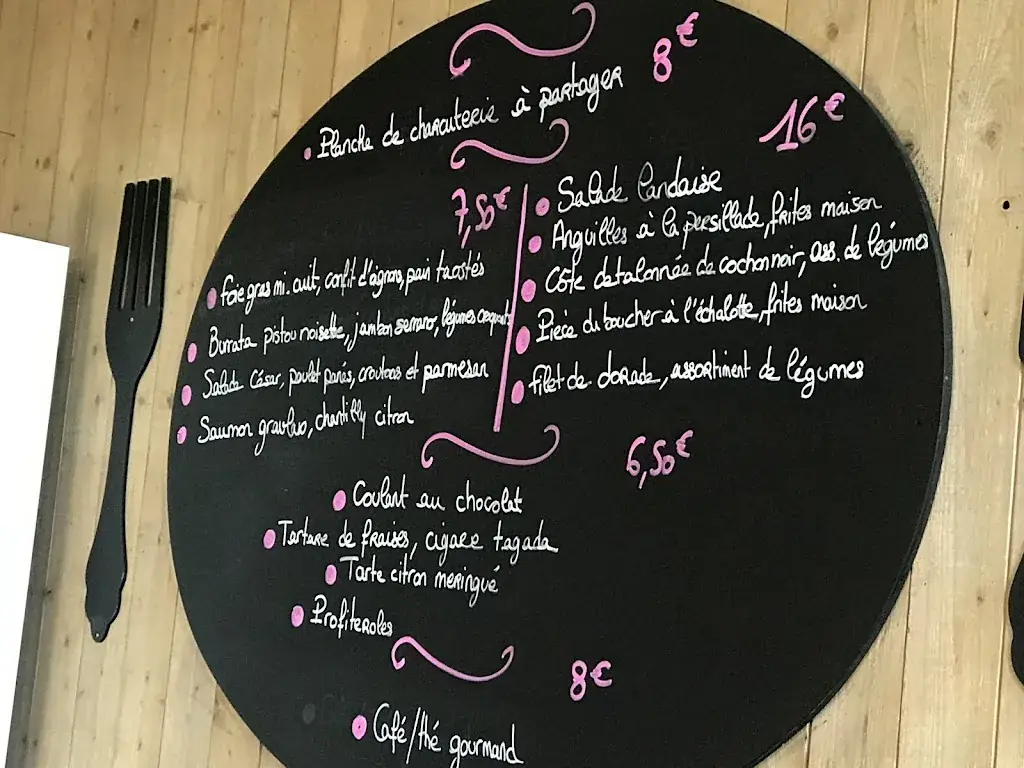 8€
Planche de charcuterie à partager
7,50€
foie gras mi-cuit, confit d'oignons, pain toastés
Burrata pistou noisette, jambon serrano, légumes croquants
Salade César, poulet panés, croutons et parmesan
Saumon gravlax, chantilly citron
16€
Salade landaise
Anguilles à la persillade, frites maison
Côte detalonnée de cochon noir, ass. de légumes
Pièce du boucher à l'échalotte, frites maison
filet de dorade, assortiment de légumes
6,50€
Coulant au chocolat
Tartare de fraises, cigare tagada
Tarte citron meringué
Profiteroles
8€
Café/thé gourmand